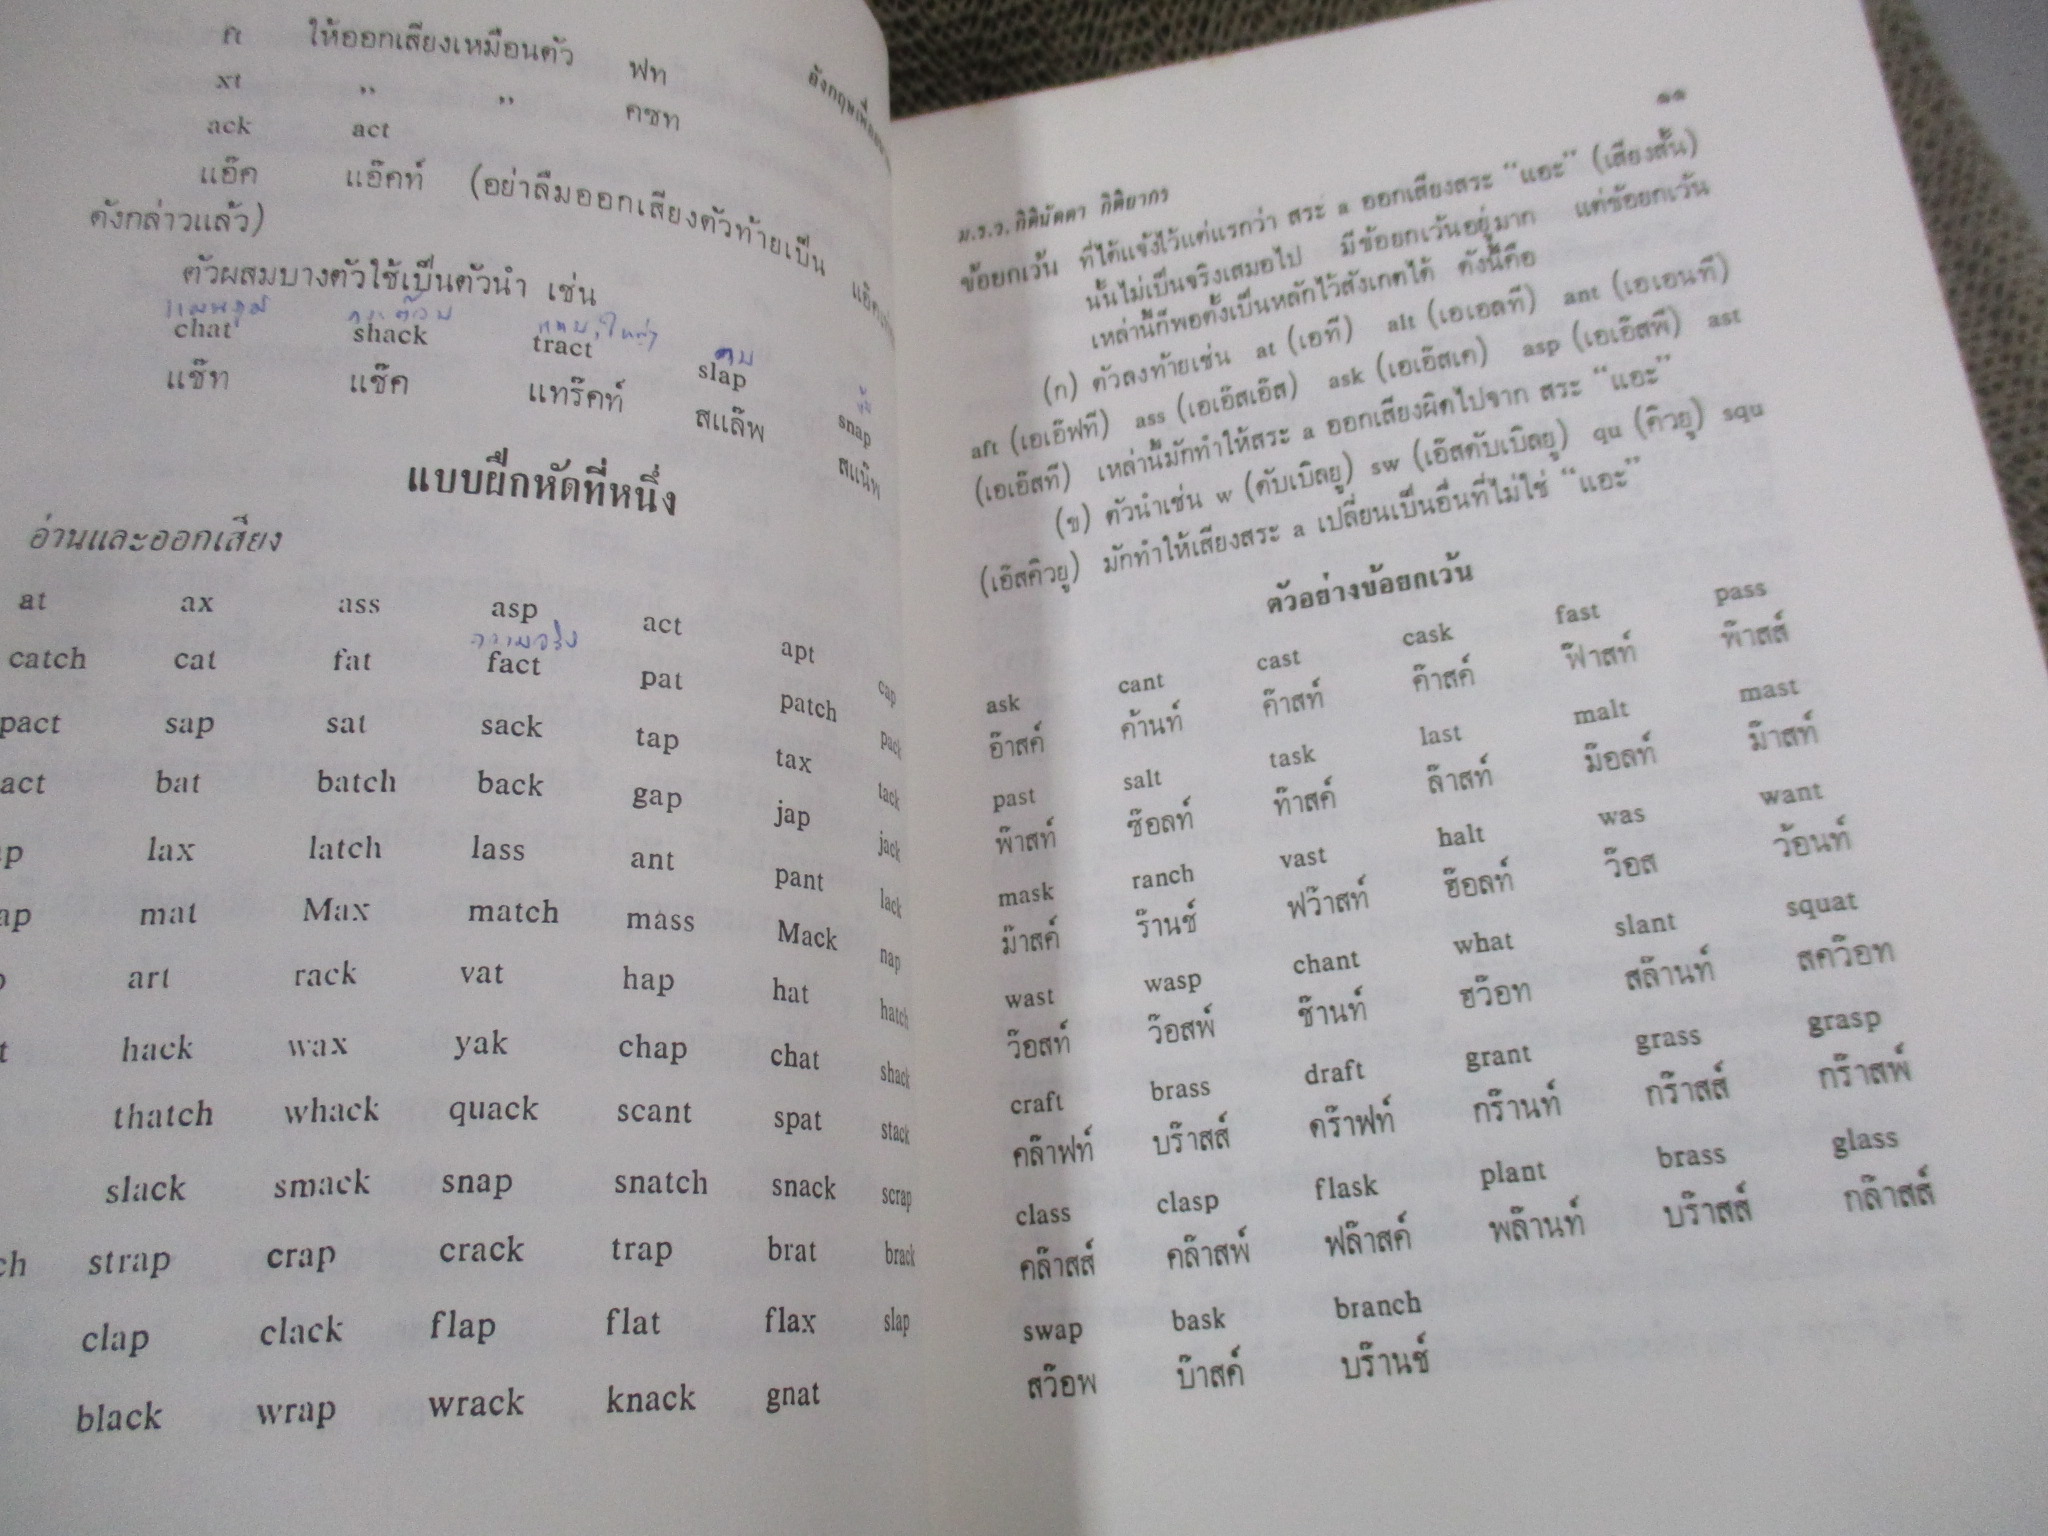 ft ให้ออกเสียงเหมือนตัว ฟท
xt " " คซท
ack act
แอ๊ค แอ๊คท์ (อย่าลืมออกเสียงตัวท้ายเป็น
ดังกล่าวแล้ว)
ตัวผสมบางตัวใช้เป็นตัวนำ เช่น
chat shack tract slap snap
แช๊ท แช๊ค แทร๊คท์ สแล๊พ สแน๊พ
แบบฝึกหัดที่หนึ่ง
อ่านและออกเสียง
at ax ass asp act apt cap
ความจริง
catch cat fat fact pat patch pack
pact sap sat sack tap tax tack
act bat batch back gap jap jack
lax latch lass ant pant lack
mat Max match mass Mack nap
art rack vat hap hat hatch
hack wax yak chap chat shack
thatch whack quack scant spat stack
slack smack snap snatch snack scrap
strap crap crack trap brat brack
clap clack flap flat flax slap
black wrap wrack knack gnat
๑๑
ม.ร.ว. กิตินัดดา กิติยากร
ข้อยกเว้น ที่ได้แจ้งไว้แต่แรกว่า สระ a ออกเสียงสระ "แอะ" (เสียงสั้น)
นั้นไม่เป็นจริงเสมอไป มีข้อยกเว้นอยู่มาก แต่ข้อยกเว้น
เหล่านี้ก็พอตั้งเป็นหลักไว้สังเกตได้ ดังนี้คือ
(ก) ตัวลงท้ายเช่น at (เอที) alt (เอเอลที) ant (เอเอนที)
aft (เอเอ๊ฟที) ass (เอเอ๊สเอ๊ส) ask (เอเอ๊สเค) asp (เอเอ๊สพี) ast
(เอเอ๊สที) เหล่านี้มักทำให้สระ a ออกเสียงผิดไปจาก สระ "แอะ"
(ข) ตัวนำเช่น w (ดับเบิลยู) sw (เอ๊สดับเบิลยู) qu (คิวยู) squ
(เอ๊สคิวยู) มักทำให้เสียงสระ a เปลี่ยนเป็นอื่นที่ไม่ใช่ "แอะ"
ตัวอย่างข้อยกเว้น
ask cant cast cask fast pass
อ๊าสค์ ค้านท์ ค๊าสท์ ค๊าสค์ ฟ๊าสท์ พ๊าสส์
past salt task last malt mast
พ๊าสท์ ซ๊อลท์ ท๊าสค์ ล๊าสท์ ม๊อลท์ ม๊าสท์
mask ranch vast halt was want
ม๊าสค์ ร๊านช์ ฟว๊าสท์ ฮ๊อลท์ ว๊อส ว้อนท์
wast wasp chant what slant squat
ว๊อสท์ ว๊อสพ์ ช๊านท์ ฮว๊อท สล๊านท์ สคว๊อท
craft brass draft grant grass grasp
คล๊าฟท์ บร๊าสส์ ดร๊าฟท์ กร๊านท์ กร๊าสส์ กร๊าสพ์
class clasp flask plant brass glass
คล๊าสส์ คล๊าสพ์ ฟล๊าสค์ พล๊านท์ บร๊าสส์ กล๊าสส์
swap bask branch
สว๊อพ บ๊าสค์ บร๊านช์